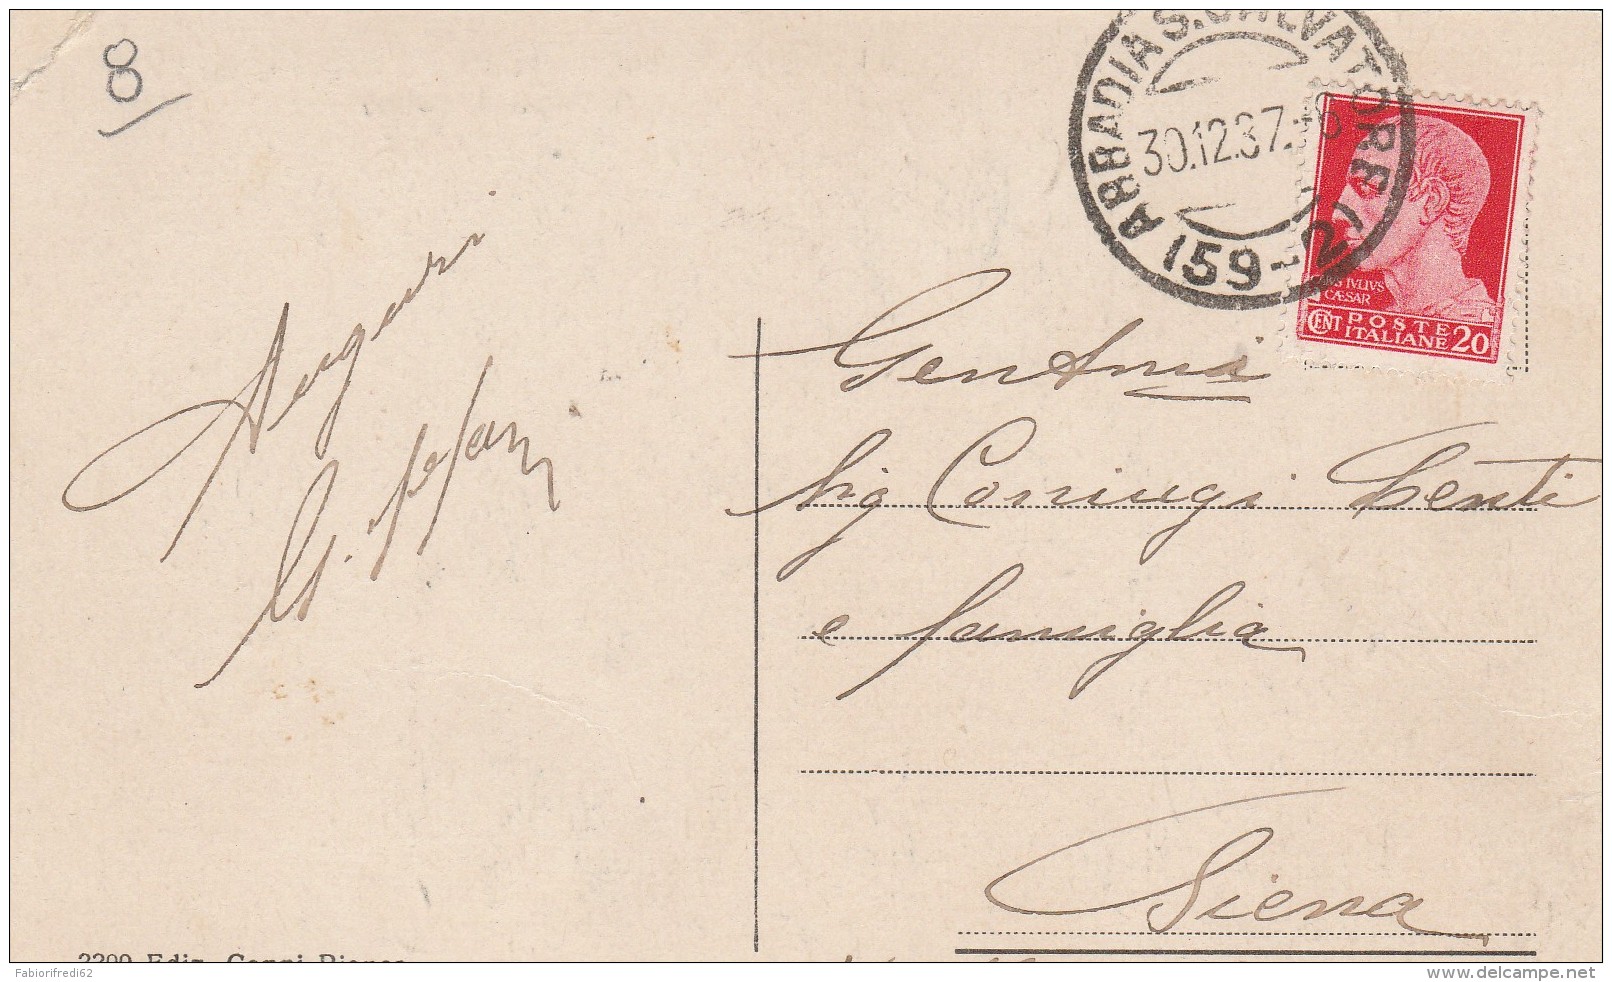 8
ABBADIA S. SALVATORE
30.12.37.-
(59-2)
IVLIVS
CÆSAR
CENT POSTE 20
ITALIANE
Auguri
Gentmi
Sig Coniugi Centi
e famiglia
Siena
Fabiorifredi62
delcampe.net